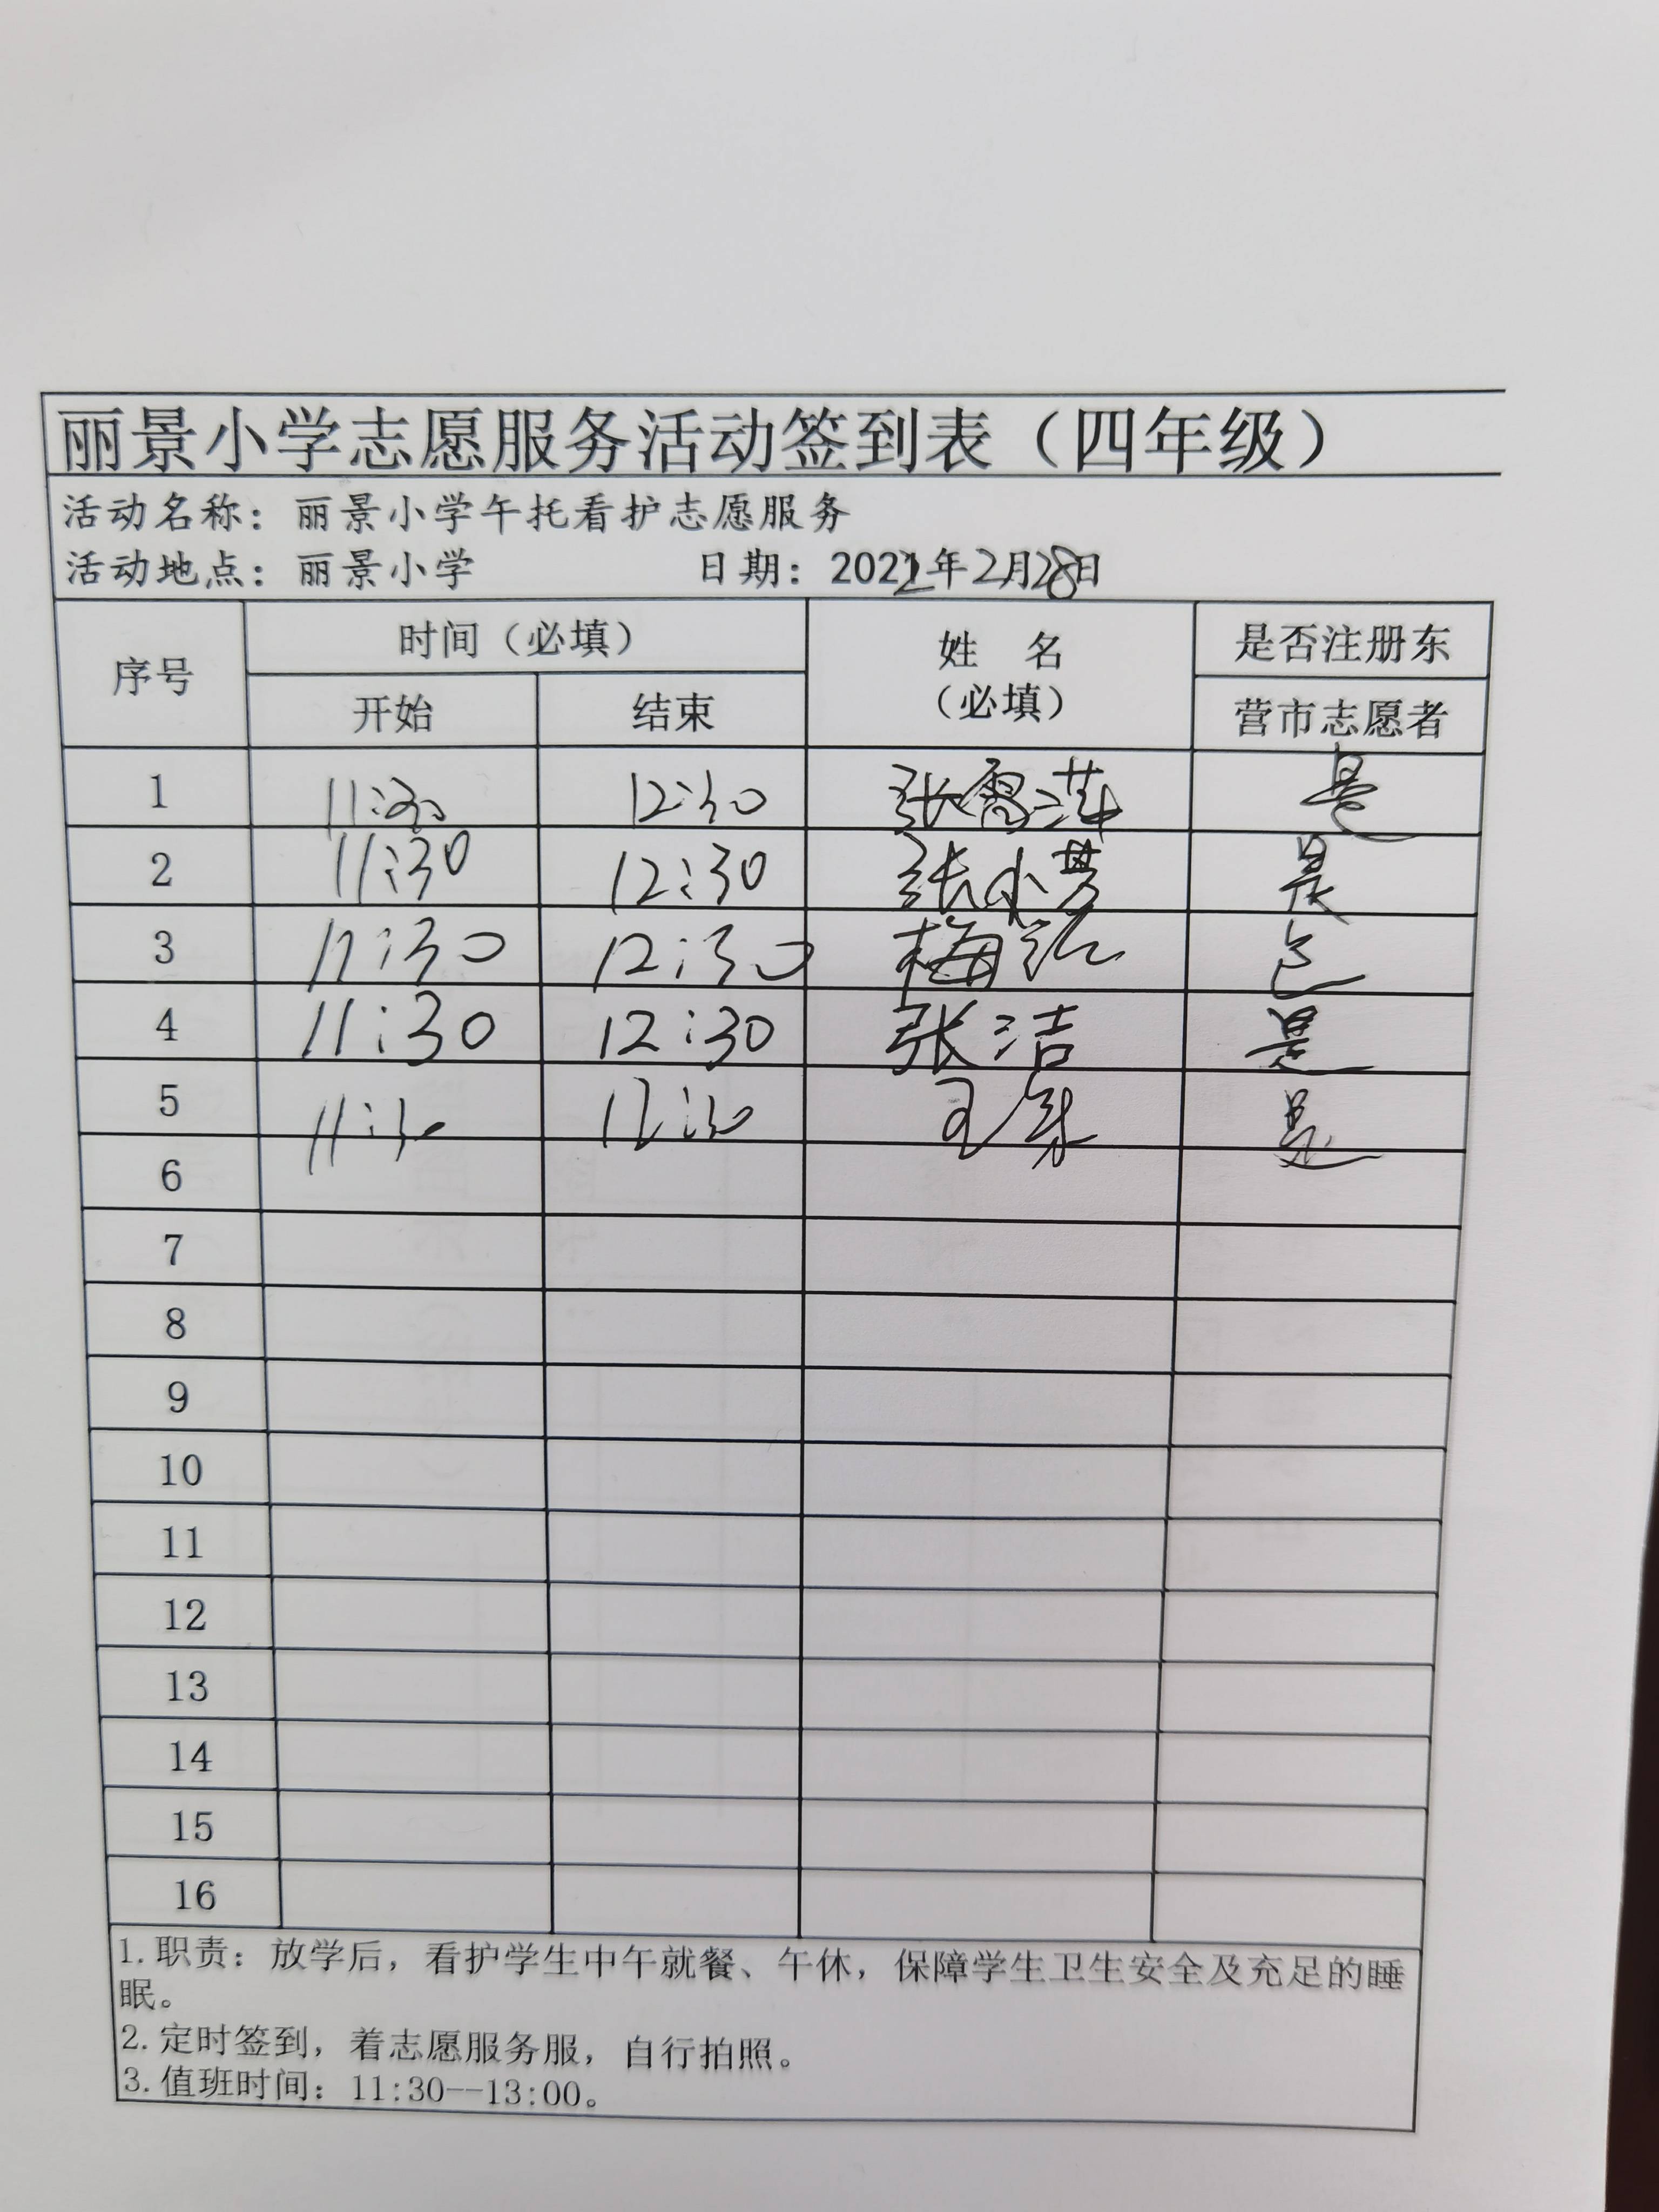 丽景小学志愿服务活动签到表（四年级）
活动名称：丽景小学午托看护志愿服务
活动地点：丽景小学 日期：2022年2月28日
序号 时间（必填） 姓 名（必填） 是否注册东营市志愿者
开始 结束
1 11:30 12:30 张雪萍 是
2 11:30 12:30 张小芳 是
3 11:30 12:30 梅 是
4 11:30 12:30 张洁 是
5 11:30 12:30 王 是
6
7
8
9
10
11
12
13
14
15
16
1.职责：放学后，看护学生中午就餐、午休，保障学生卫生安全及充足的睡
眠。
2.定时签到，着志愿服务服，自行拍照。
3.值班时间：11:30--13:00。